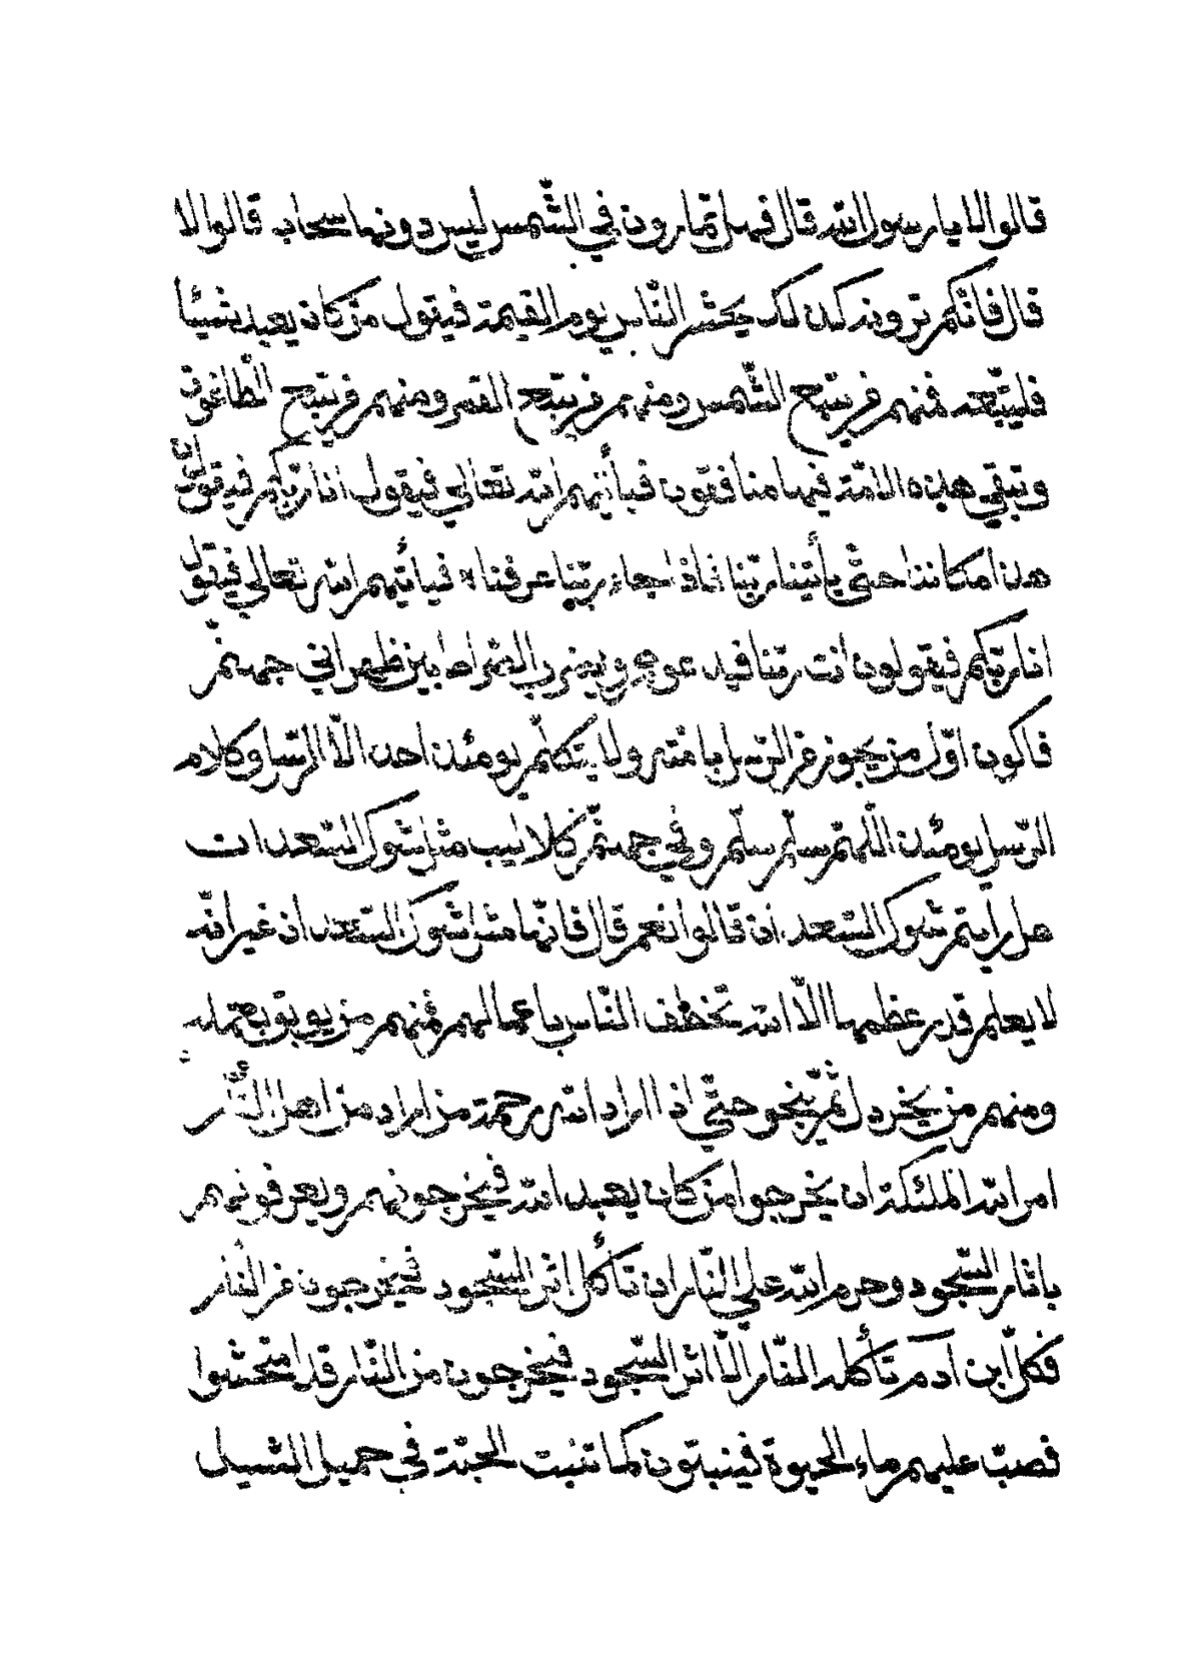 قالوا لا يا رسول الله قال فهل تمارون في الشّمس ليس دونها سحاب قالوا لا
قال فانّكم ترونه كذلك يحشر النّاس يوم القيمة فيقول من كان يعبد شيئًا
فليتّبعه فمنهم من يتبع الشّمس ومنهم من يتبع القمر ومنهم من يتبع الطّاغوت
وتبقي هذه الامّة فيها منافقون فيأتيهم الله تعالي فيقول انا ربّكم فيقولون
هذا مكاننا حتّي يأتينا ربّنا فاذا جاء ربّنا عرفناه فيأتيهم الله تعالي فيقول
انا ربّكم فيقولون انت ربّنا فيدعوهم ويضرب الصّراط بين ظهراني جهنّم
فاكون اوّل من يجوز من الرّسل بامّته ولا يتكلّم يومئذ احد الّا الرّسل وكلام
الرّسل يومئذ اللّهمّ سلّم سلّم وفي جهنّم كلاليب مثل شوك السّعدان
هل رأيتم شوك السّعدان قالوا نعم قال فانّها مثل شوك السّعدان غير انّه
لا يعلم قدر عظمها الّا الله تخطف النّاس باعمالهم فمنهم من يوبق بعمله
ومنهم من يخردل ثمّ ينجو حتّي اذا اراد الله رحمة من اراد من اهل النّار
امر الله الملئكة ان يخرجوا من كان يعبد الله فيخرجونهم ويعرفونهم
باثار السّجود وحرم الله علي النّار ان تأكل اثر السّجود فيخرجون من النّار
فكلّ ابن آدم تأكله النّار الّا اثر السّجود فيخرجون من النّار قد امتحشوا
فصبّ عليهم ماء الحيوة فينبتون كما تنبت الحبّة في حميل السّيل